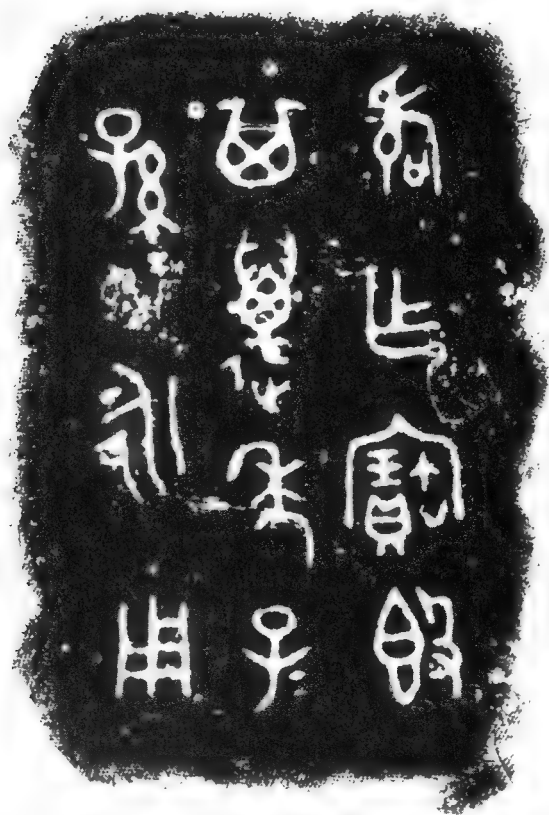 乍寶𣪘
其萬年子
孫永用